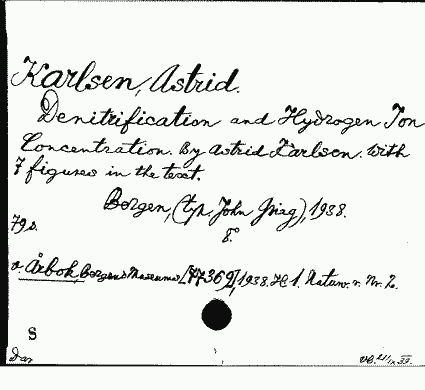 Karlsen, Astrid.
Denitrification and Hydrogen Ion
Concentration. By Astrid Karlsen. With
7 figures in the text.
Bergen, (typ. John Grieg), 1938.
8°
79 s.
Årbok, Bergens Museums 1938. H 1. Naturv. r. Nr. 2.
S